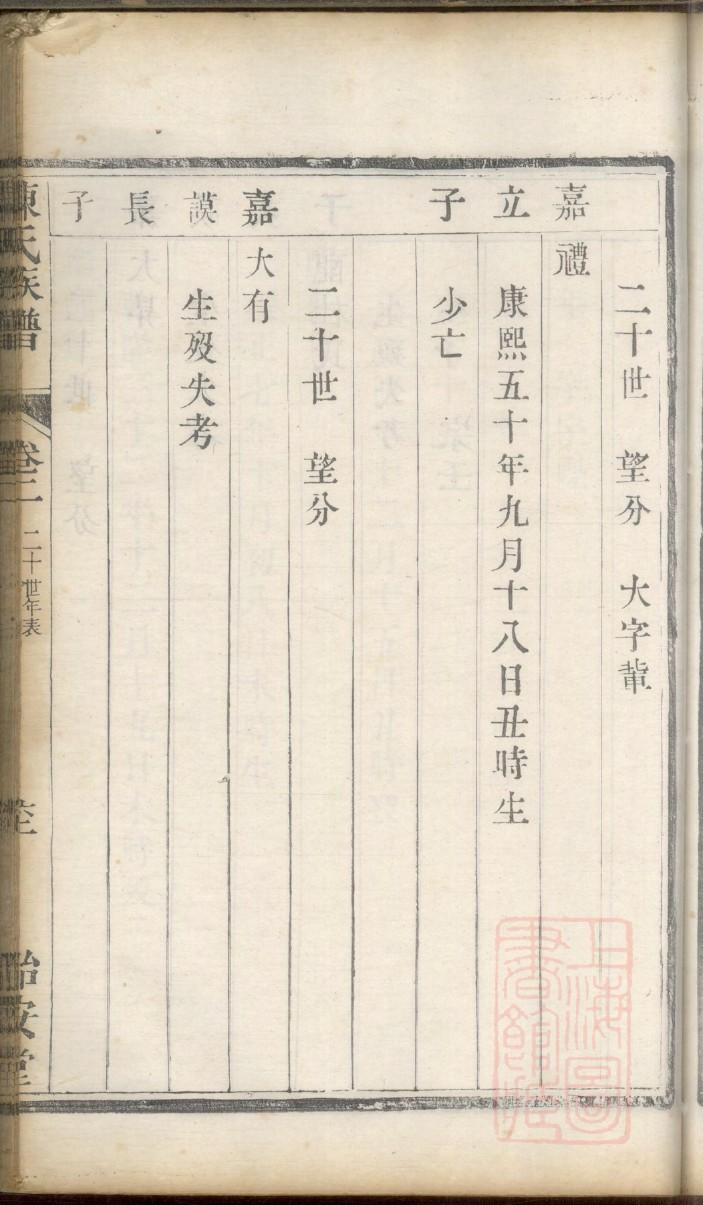 二十世 望分 大字輩
嘉禮
立 康熙五十年九月十八日丑時生
子 少亡
二十世 望分
嘉 大有
謨 生歿失考
長
子
陳氏族譜 卷二 二十世年表 怡安堂
上海圖
書館藏